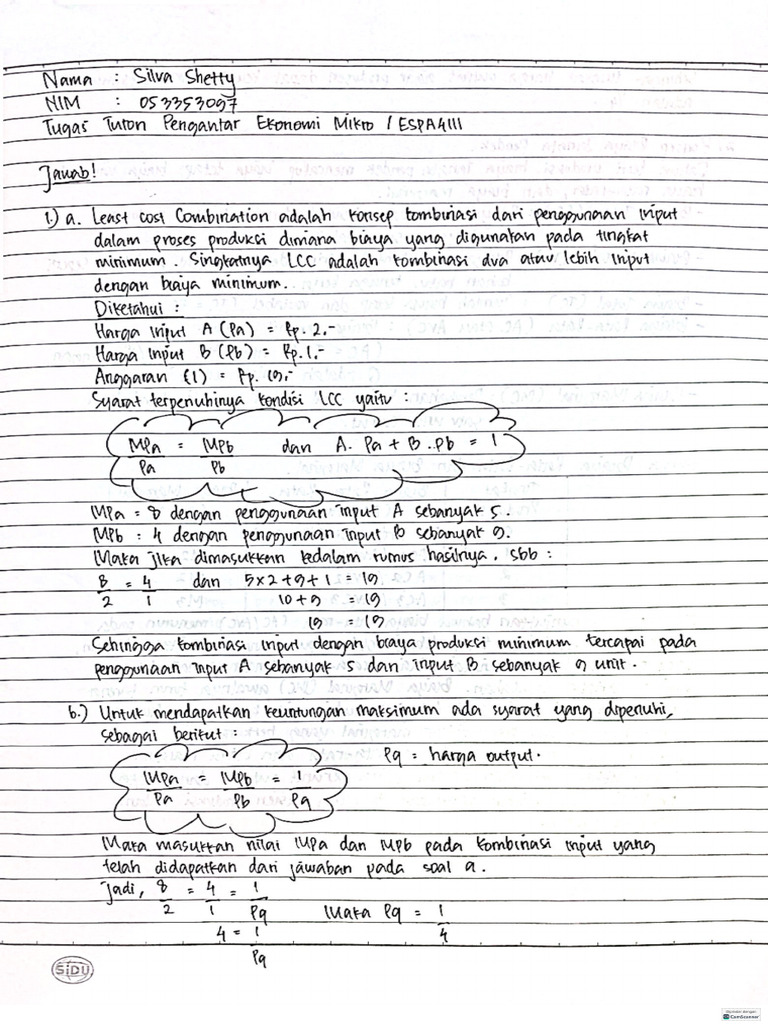 Nama : Silva Shetty
NIM : 053353097
Tugas Tuton Pengantar Ekonomi Mikro / ESPA4111
Jawab!
1.) a. Least cost Combination adalah konsep kombinasi dari penggunaan input
dalam proses produksi dimana biaya yang digunakan pada tingkat
minimum. Singkatnya LCC adalah kombinasi dua atau lebih input
dengan biaya minimum.
Diketahui :
Harga input A (Pa) = Rp. 2,-
Harga Input B (Pb) = Rp. 1,-
Anggaran (1) = Rp. 19,-
Syarat terpenuhinya kondisi LCC yaitu :
MPa/Pa = MPb/Pb dan A. Pa + B. Pb = 1
MPa = 8 dengan penggunaan input A sebanyak 5.
MPb : 4 dengan penggunaan input B sebanyak 9.
Maka jika dimasukkan kedalam rumus hasilnya, sbb :
8/2 = 4/1 dan 5x2 + 9 + 1 = 19
10 + 9 = 19
19 = 19
Sehingga kombinasi input dengan biaya produksi minimum tercapai pada
penggunaan input A sebanyak 5 dan input B sebanyak 9 unit.
b.) Untuk mendapatkan keuntungan maksimum ada syarat yang dipenuhi,
sebagai berikut :
MPa/Pa = MPb/Pb = 1/Pq Pq = harga output.
Maka masukkan nilai MPa dan MPb pada kombinasi input yang
telah didapatkan dari jawaban pada soal a.
Jadi, 8/2 = 4/1 = 1/Pq Maka Pq = 1/4
4 = 1/Pq
SiDU
CamScanner